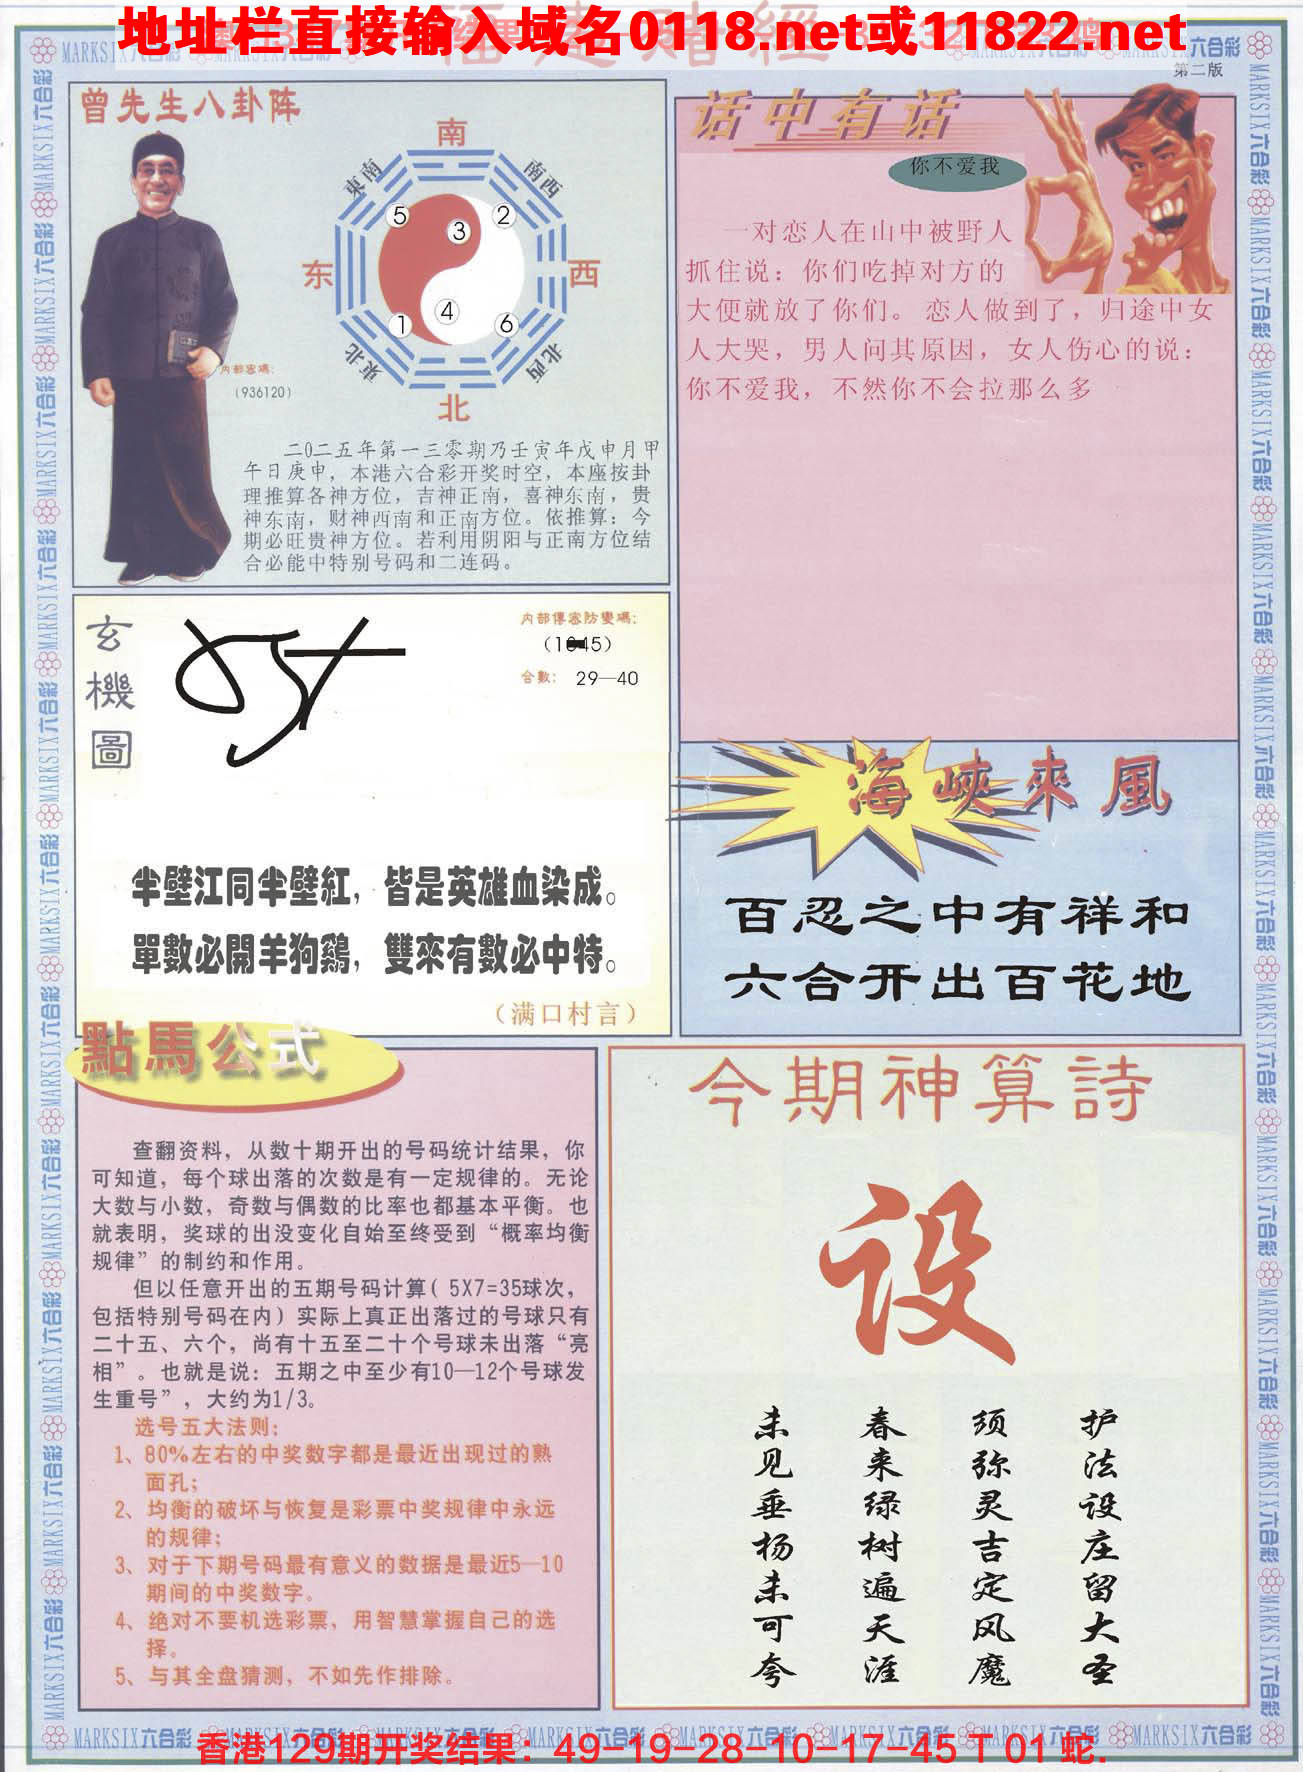 地址栏直接输入域名0118.net或11822.net
第二版
曾先生八卦阵
南
東南
南西
5
3
2
东
西
4
1
6
東北
北西
北
内部密碼:
(936120)
二〇二五年第一三零期乃壬寅年戊申月甲
午日庚申，本港六合彩开奖时空，本座按卦
理推算各神方位，吉神正南，喜神东南，贵
神东南，财神西南和正南方位。依推算：今
期必旺贵神方位。若利用阴阳与正南方位结
合必能中特别号码和二连码。
话中有话
你不爱我
一对恋人在山中被野人
抓住说：你们吃掉对方的
大便就放了你们。恋人做到了，归途中女
人大哭，男人问其原因，女人伤心的说：
你不爱我，不然你不会拉那么多
玄機圖
内部傳密防變碼:
合數: 29—40
半壁江同半壁紅，皆是英雄血染成。
單數必開羊狗鷄，雙來有數必中特。
（满口村言）
海峽來風
百忍之中有祥和
六合开出百花地
點馬公式
查翻资料，从数十期开出的号码统计结果，你
可知道，每个球出落的次数是有一定规律的。无论
大数与小数，奇数与偶数的比率也都基本平衡。也
就表明，奖球的出没变化自始至终受到“概率均衡
规律”的制约和作用。
但以任意开出的五期号码计算( 5X7=35球次，
包括特别号码在内）实际上真正出落过的号球只有
二十五、六个，尚有十五至二十个号球未出落“亮
相”。也就是说：五期之中至少有10—12个号球发
生重号”，大约为1/3。
选号五大法则：
1、80%左右的中奖数字都是最近出现过的熟
面孔；
2、均衡的破坏与恢复是彩票中奖规律中永远
的规律；
3、对于下期号码最有意义的数据是最近5—10
期间的中奖数字。
4、绝对不要机选彩票，用智慧掌握自己的选
择。
5、与其全盘猜测，不如先作排除。
今期神算詩
设
护法设庄留大圣
须弥灵吉定风魔
春来绿树遍天涯
未见垂杨未可夸
MARKSIX六合彩
香港129期开奖结果：49-19-28-10-17-45 T 01 蛇.